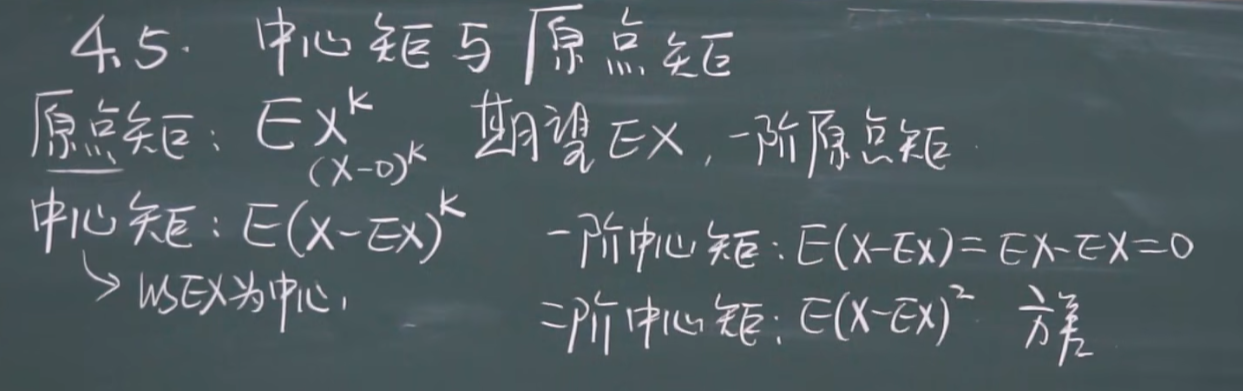 4.5. 中心矩与原点矩
原点矩: EX^k 期望EX, 一阶原点矩.
(X-0)^k
中心矩: E(X-EX)^k 一阶中心矩: E(X-EX)=EX-EX=0
↘ 以EX为中心, 二阶中心矩: E(X-EX)² 方差